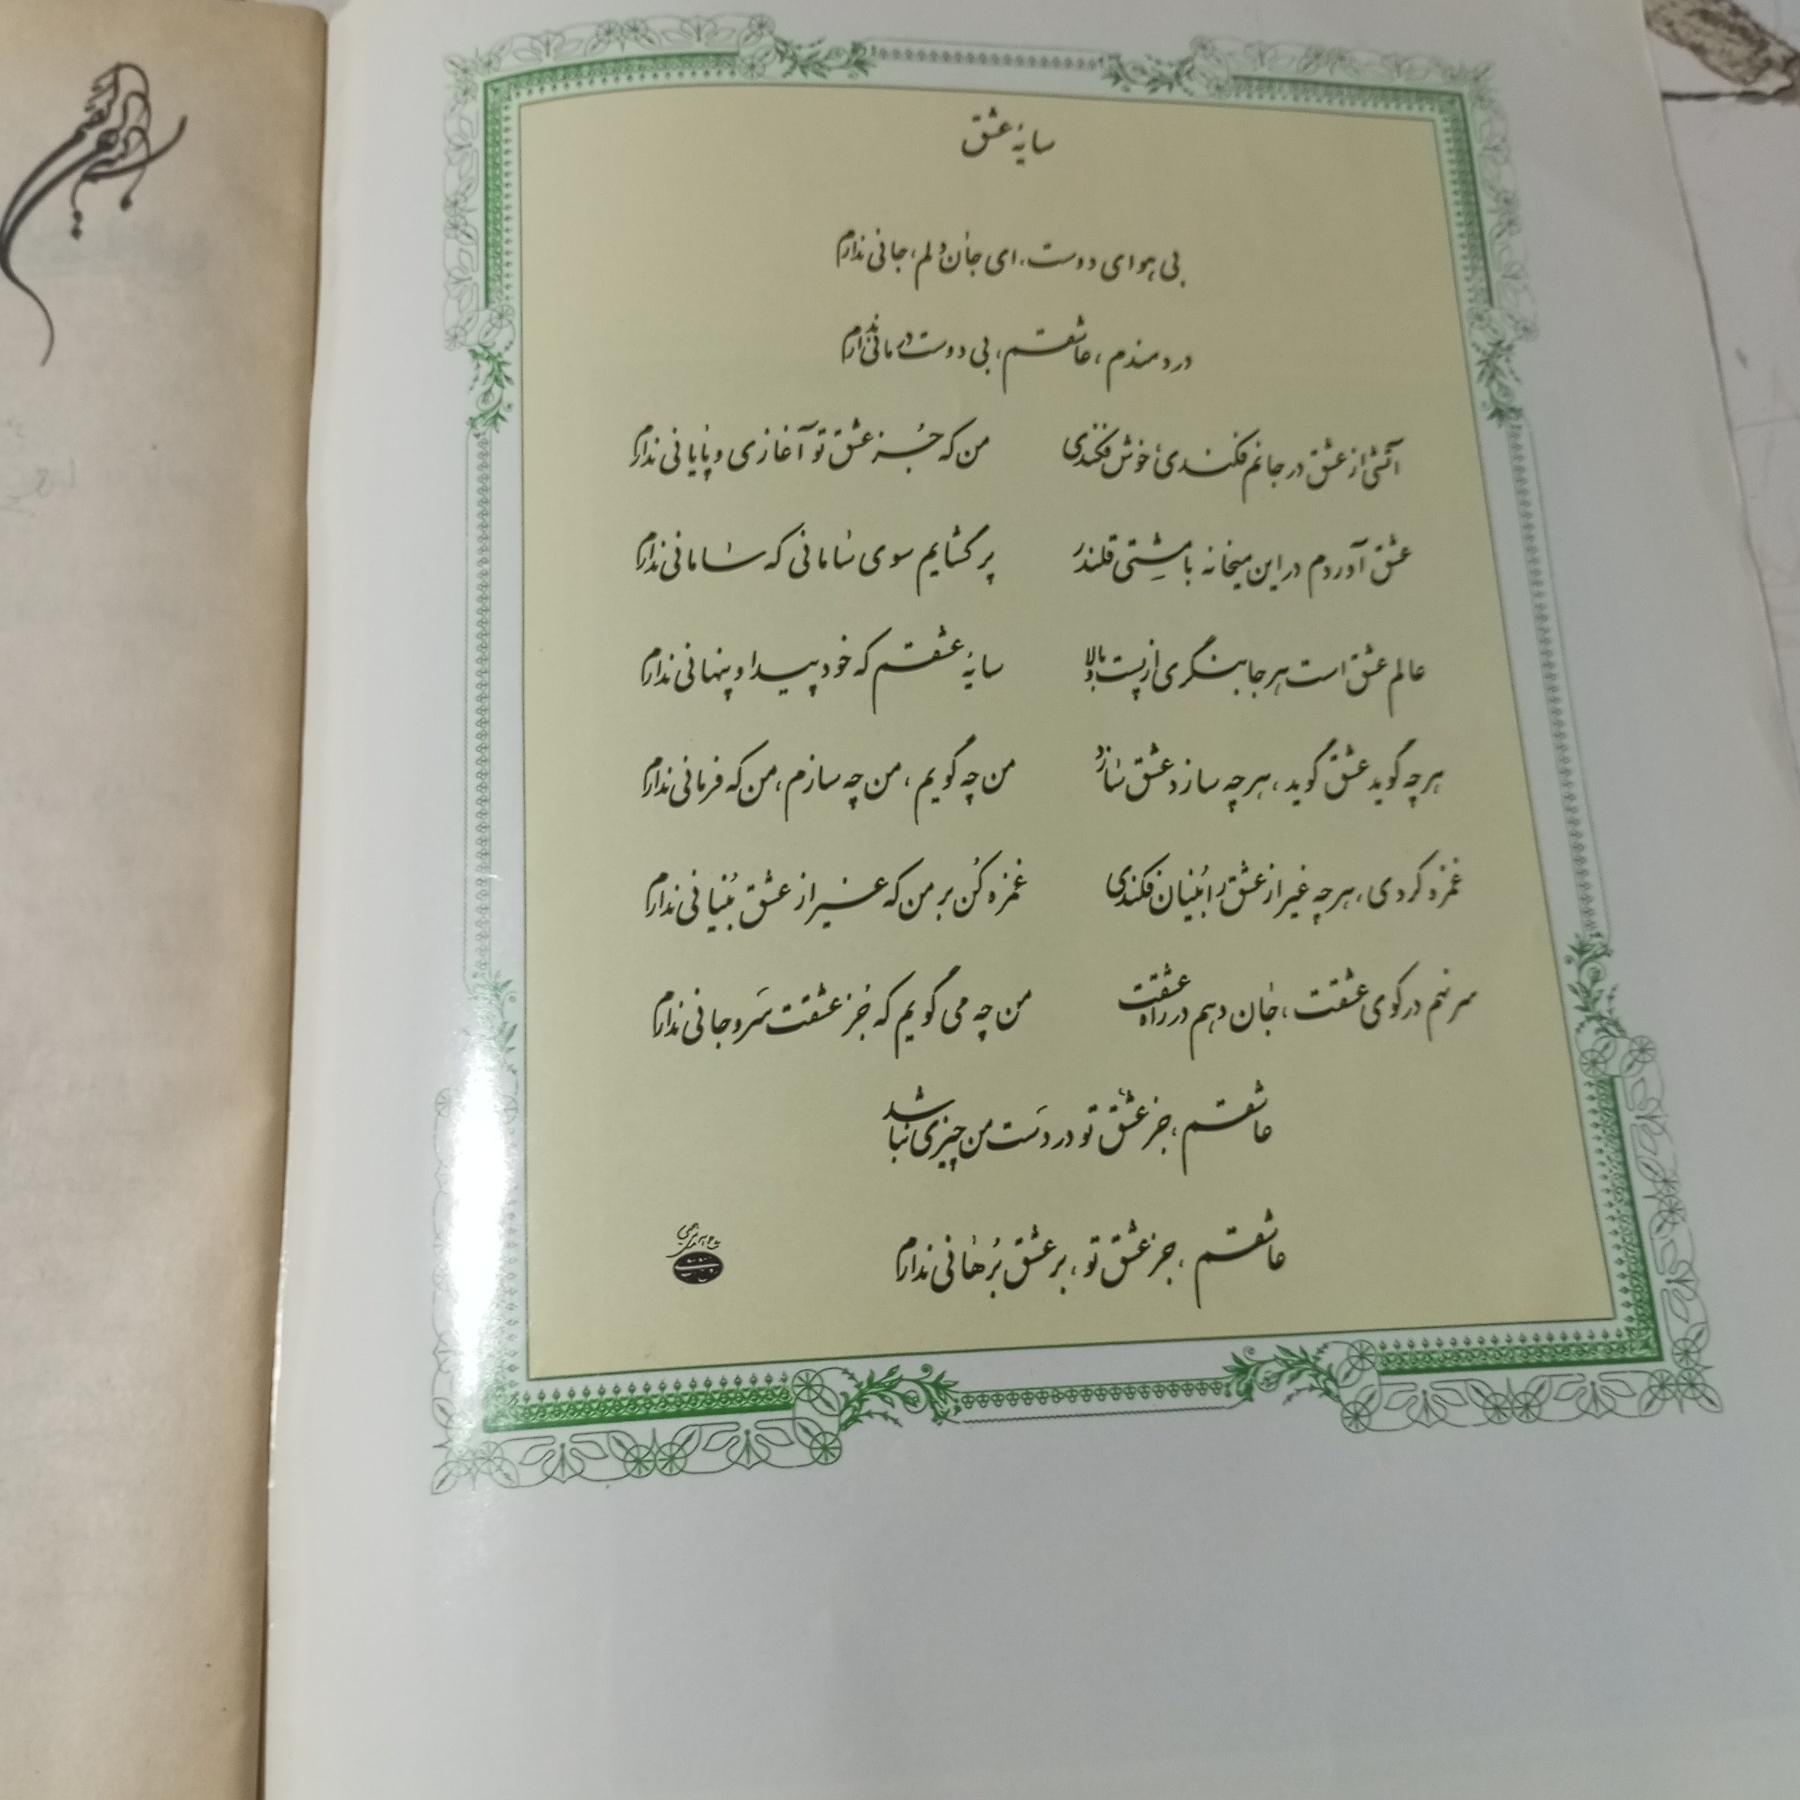 سایهٔ عشق
بی هوای دوست، ای جان دلم، جانی ندارم
دردمندم، عاشقم، بی دوست درمانی ندارم
آتشی از عشق در جانم فکندی، خوش فکندی من که جُز عشق تو آغازی و پایانی ندارم
عشق آوردم در این میخانه با مشتی قلندر پر گشایم سوی سامانی که سامانی ندارم
عالم عشق است هر جا بنگری از پست و بالا سایهٔ عشقم که خود پیدا و پنهانی ندارم
هر چه گوید عشق گوید، هر چه سازد عشق سازد من چه گویم، من چه سازم، من که فرمانی ندارم
غمزه کردی، هر چه غیر از عشق را بُنیان فکندی غمزه کُن بر من که غیر از عشق بُنیانی ندارم
سر نهم در کوی عشقت، جان دهم در راه عشقت من چه می گویم که جُز عشقت سَر و جانی ندارم
عاشقم، جز عشق تو در دست من چیزی نباشد
عاشقم، جز عشق تو، بر عشق بُرهانی ندارم